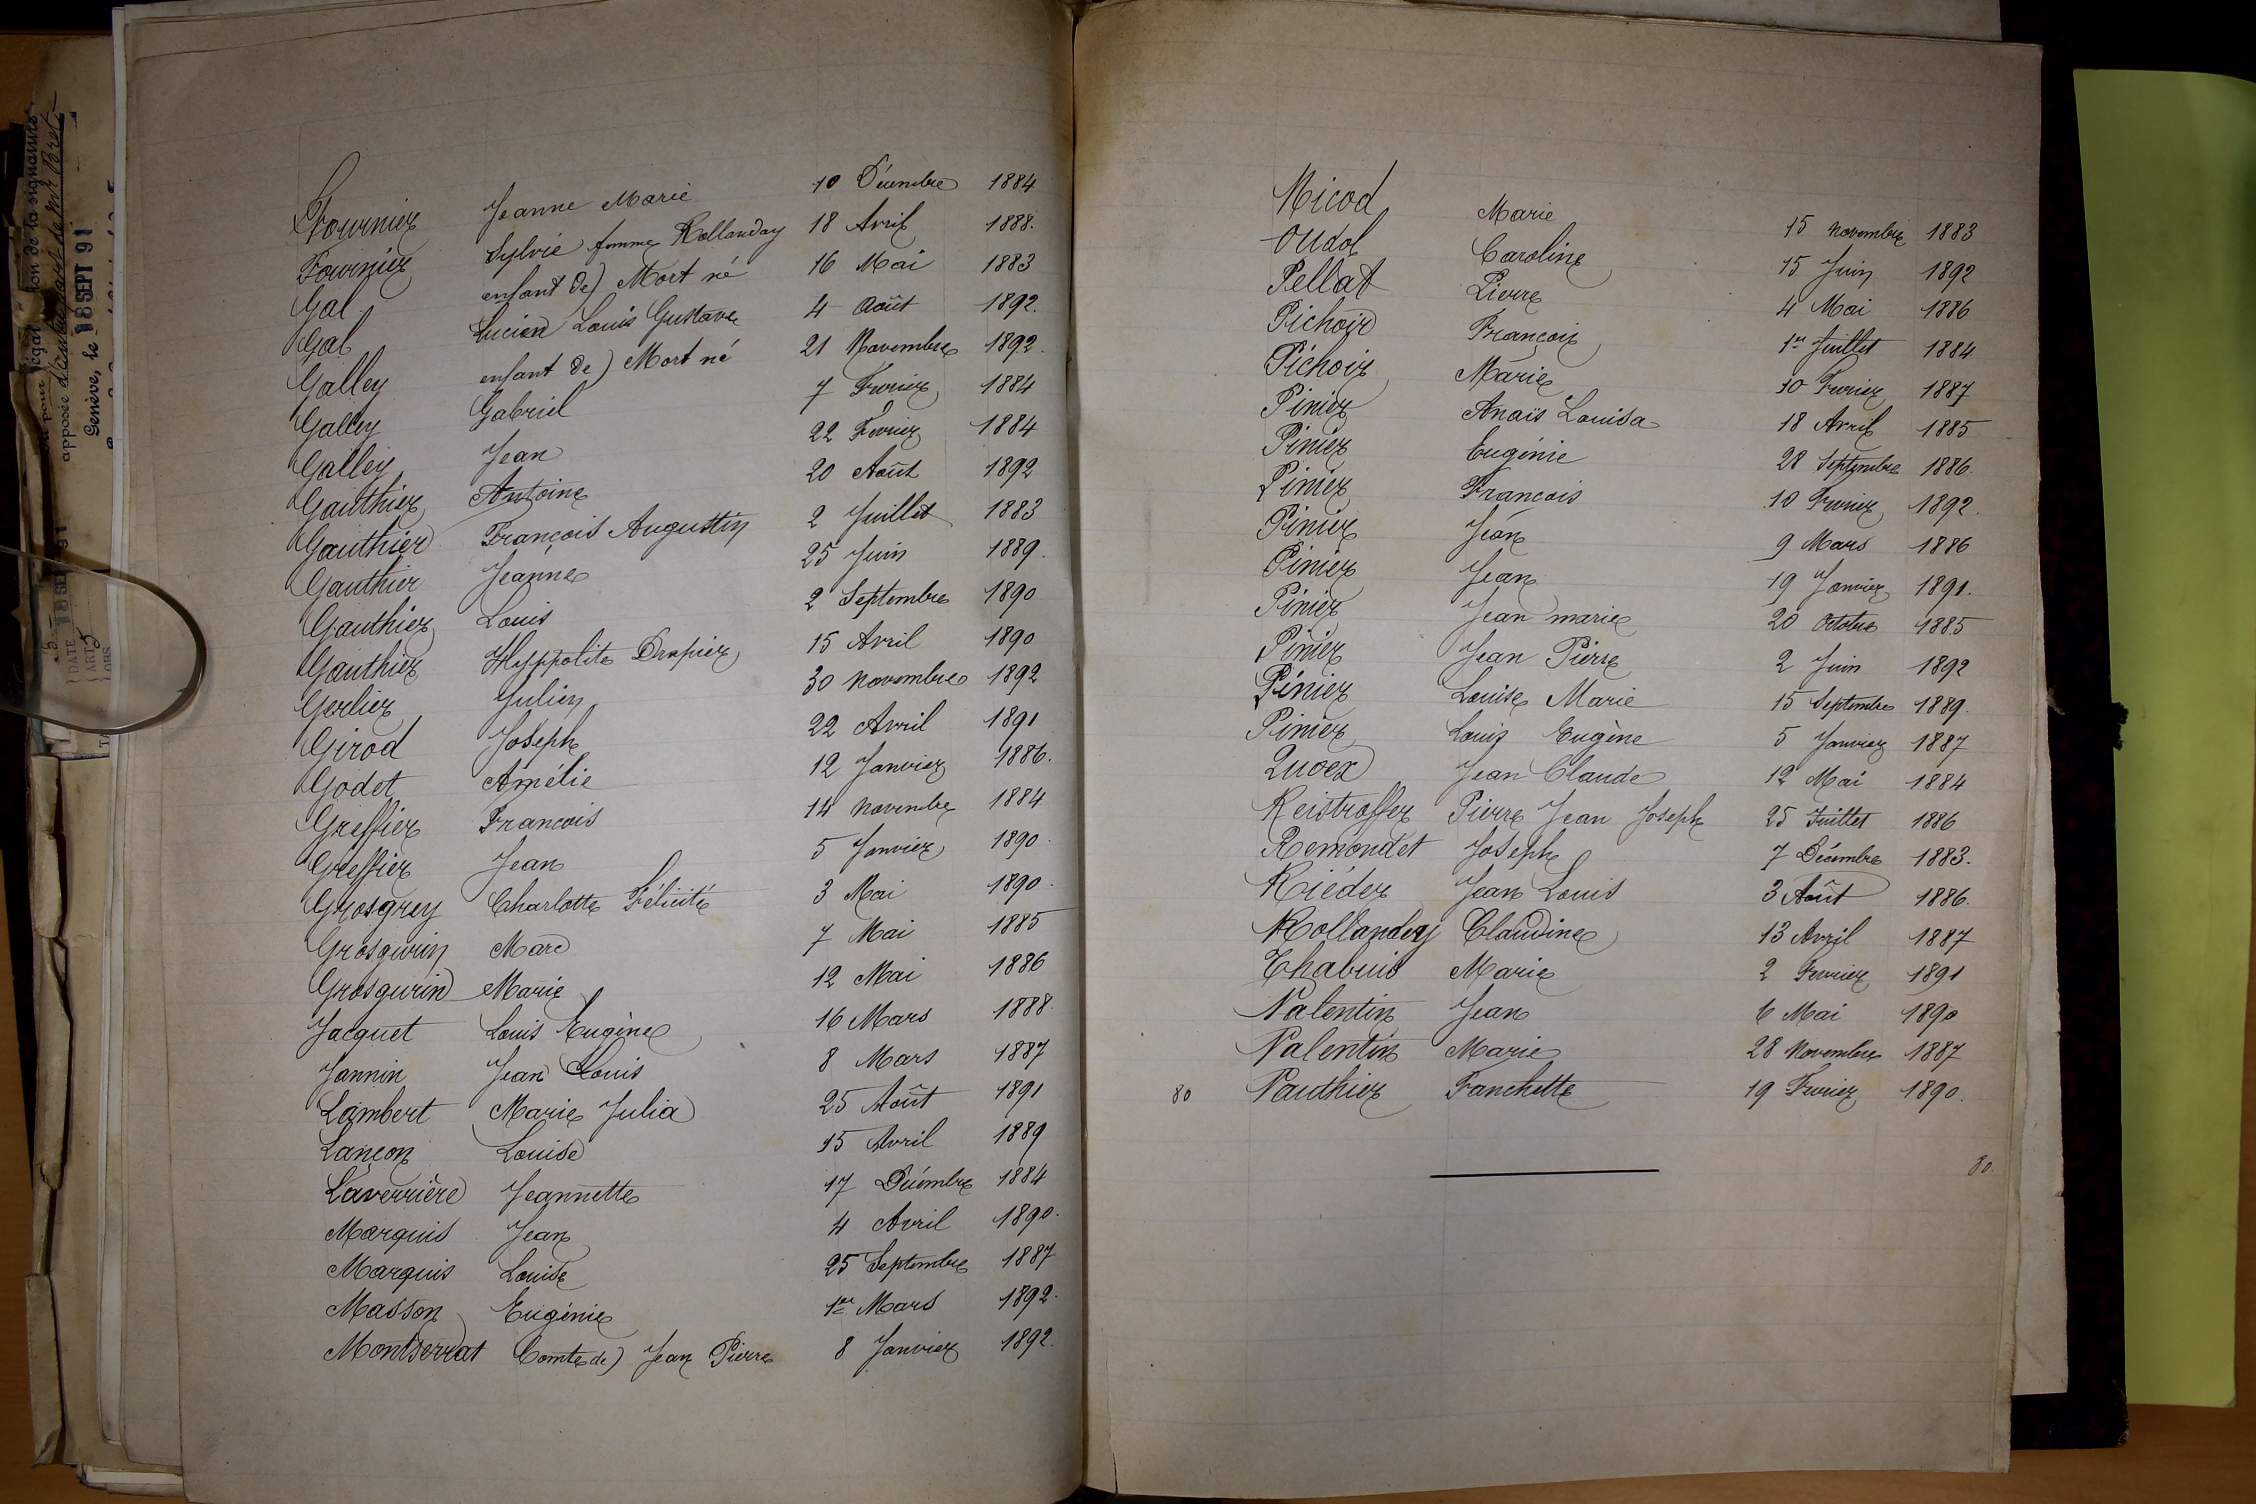 Fournier Jeanne Marie 10 Décembre 1884
Fournier Sylvie femme Rollanday 18 Avril 1888.
Gal enfant de) Mort né 16 Mai 1883
Gal Lucien Louis Gustave 4 Août 1892.
Galley enfant de) Mort né 21 Novembre 1892.
Galley Gabriel 7 Fevrier 1884
Galley Jean 22 Fevrier 1884
Gauthier Antoine 20 Août 1892
Gauthier François Augustin 2 Juillet 1883
Gauthier Jeanne 25 Juin 1889.
Gauthier Louis 2 Septembre 1890
Gauthier Hyppolite Drapier 15 Avril 1890
Gerlier Julien 30 Novembre 1892
Girod Joseph 22 Avril 1891
Godet Amélie 12 Janvier 1886.
Greffier François 14 Novembre 1884
Greffier Jean 5 Janvier 1890.
Grosgrey Charlotte Félicité 3 Mai 1890.
Grosgurin Marc 7 Mai 1885
Grosgurin Marie 12 Mai 1886
Jacquet Louis Eugène 16 Mars 1888.
Jannin Jean Louis 8 Mars 1887
Lambert Marie Julia 25 Août 1891
Lançon Louise 15 Avril 1889
Laverrière Jeannette 17 Décembre 1884
Marquis Jean 4 Avril 1890.
Marquis Louise 25 Septembre 1887
Masson Eugénie 1er Mars 1892.
Montserrat Comte de) Jean Pierre 8 Janvier 1892.
Nicod Marie 15 Novembre 1883
Oudol Caroline 15 Juin 1892
Pellat Pierre 4 Mai 1886
Pichoir François 1er Juillet 1884
Pichoir Marie 10 Fevrier 1887
Pinier Anaïs Louisa 18 Avril 1885
Pinier Eugénie 28 Septembre 1886.
Pinier François 10 Fevrier 1892.
Pinier Jean 9 Mars 1886
Pinier Jean 19 Janvier 1891.
Pinier Jean marie 20 Octobre 1885
Pinier Jean Pierre 2 Juin 1892
Pinier Louise Marie 15 Septembre 1889.
Pinier Louis Eugène 5 Janvier 1887
Quoex Jean Claude 12 Mai 1884
Reistroffer Pierre Jean Joseph 25 Juillet 1886
Remondet Joseph 7 Décembre 1883.
Riéder Jean Louis 3 Août 1886.
Rollanday Claudine 13 Avril 1887
Thabuis Marie 2 Fevrier 1891
Valentin Jean 6 Mai 1890
Valentin Marie 28 Novembre 1887
80 Vauthier Fanchette 19 Fevrier 1890.
80.
apposée d'autre part
Genève, le 18 SEPT 91